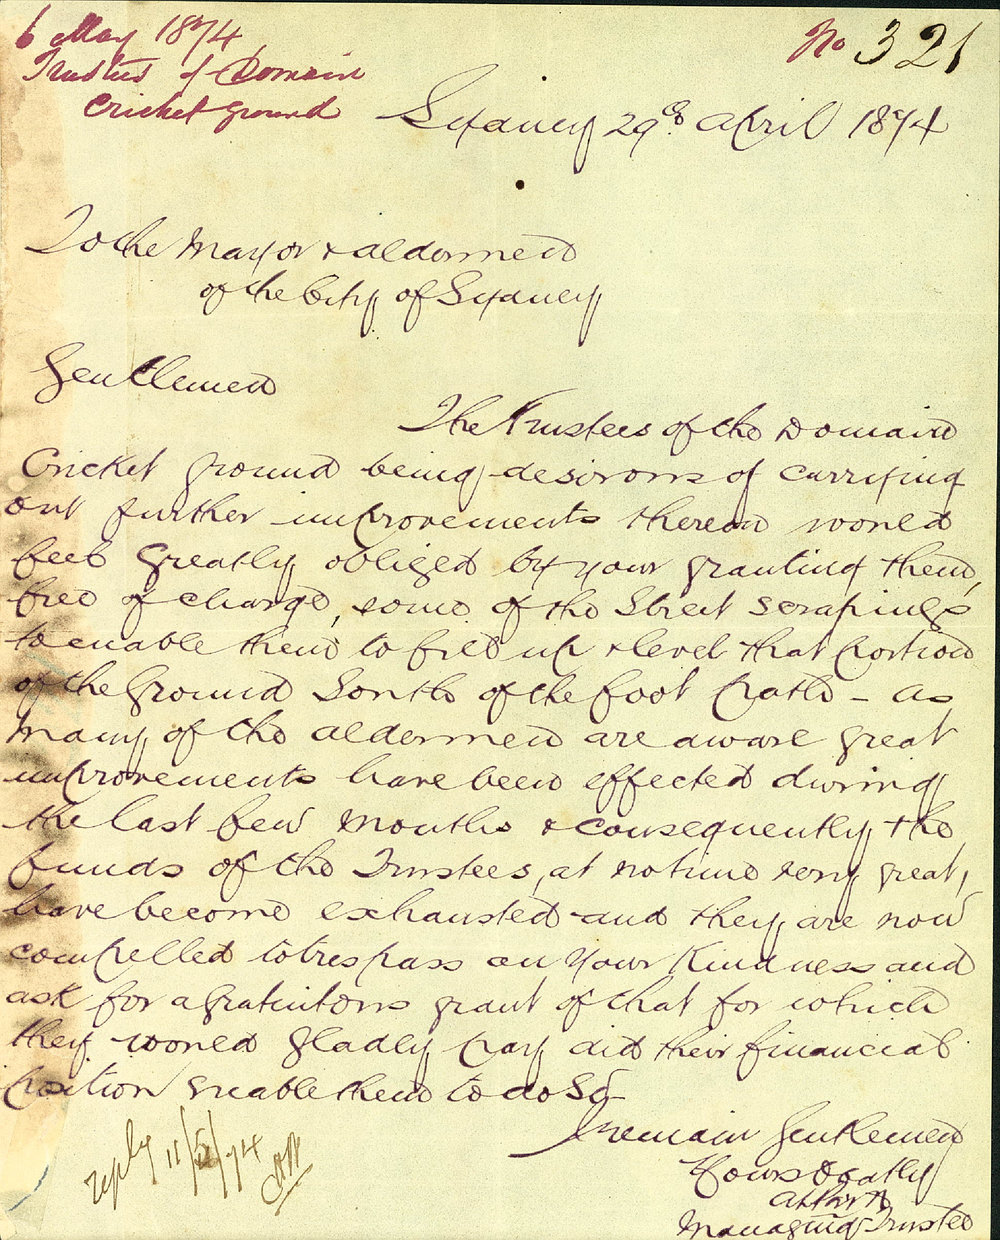 6 May 1874
Trustees of Domain
Cricket ground
No 321
Sydney 29th April 1874
To the Mayor & aldermen
of the City of Sydney
Gentlemen
The Trustees of the Domain
Cricket ground being desirous of carrying
out further improvements thereon would
feel greatly obliged by your granting them,
free of charge, some of the Street scrapings
to enable them to fill up & level that portion
of the ground South of the foot path – as
many of the aldermen are aware great
improvements have been effected during
the last few months & consequently the
funds of the Trustees, at no time very great,
have become exhausted and they are now
compelled to trespass on your Kindness and
ask for a gratuitous grant of that for which
they would gladly pay did their financial
position enable them to do so –
I remain Gentlemen
Yours
Managing Trustee
reply 11/5/74